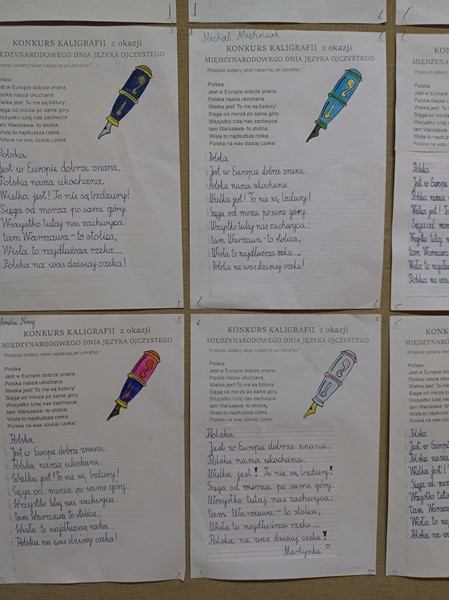 KONKURS KALIGRAFII z okazji
MIĘDZYNARODOWEGO DNIA JĘZYKA OJCZYSTEGO
Przepisz podany tekst najładniej jak potrafisz
Polska
Jest w Europie dobrze znana
Polska nasza ukochana.
Wielka jest! To nie są bzdury!
Sięga od morza po same góry.
Wszystko tutaj nas zachwyca:
tam Warszawa- to stolica,
Wisła to najdłuższa rzeka.
Polska na was dzisiaj czeka!
Polska
Jest w Europie dobrze znana,
Polska nasza ukochana.
Wielka jest! To nie są bzdury!
Sięga od morza po same góry.
Wszystko tutaj nas zachwyca:
tam Warszawa - to stolica,
Wisła to najdłuższa rzeka...
Polska na was dzisiaj czeka!
Michał
KONKURS KALIGRAFII z okazji
MIĘDZYNARODOWEGO DNIA JĘZYKA OJCZYSTEGO
Przepisz podany tekst najładniej jak potrafisz
Polska
Jest w Europie dobrze znana
Polska nasza ukochana.
Wielka jest! To nie są bzdury!
Sięga od morza po same góry.
Wszystko tutaj nas zachwyca:
tam Warszawa- to stolica,
Wisła to najdłuższa rzeka.
Polska na was dzisiaj czeka!
Polska
Jest w Europie dobrze znana,
Polska nasza ukochana.
Wielka jest! To nie są bzdury!
Sięga od morza po same góry.
Wszystko tutaj nas zachwyca:
tam Warszawa - to stolica,
Wisła to najdłuższa rzeka...
Polska na was dzisiaj czeka!
KONKURS KALIGRAFII z okazji
MIĘDZYNARODOWEGO DNIA JĘZYKA OJCZYSTEGO
Przepisz podany tekst najładniej jak potrafisz
Polska
Jest w Europie dobrze znana
Polska nasza ukochana.
Wielka jest! To nie są bzdury!
Sięga od morza po same góry.
Wszystko tutaj nas zachwyca:
tam Warszawa- to stolica,
Wisła to najdłuższa rzeka.
Polska na was dzisiaj czeka!
Polska
Jest w Europie dobrze znana.
Polska nasza ukochana.
Wielka jest! To nie są bzdury!
Sięga od morza po same góry.
Wszystko tutaj nas zachwyca:
tam Warszawa to stolica,
Wisła to najdłuższa rzeka...
Polska na was dzisiaj czeka!
KONKURS KALIGRAFII z okazji
MIĘDZYNARODOWEGO DNIA JĘZYKA OJCZYSTEGO
Przepisz podany tekst najładniej jak potrafisz
Polska
Jest w Europie dobrze znana
Polska nasza ukochana.
Wielka jest! To nie są bzdury!
Sięga od morza po same góry.
Wszystko tutaj nas zachwyca:
tam Warszawa- to stolica,
Wisła to najdłuższa rzeka.
Polska na was dzisiaj czeka!
Polska
Jest w Europie dobrze znana
Polska nasza ukochana.
Wielka jest! To nie są bzdury!
Sięga od morza po same góry.
Wszystko tutaj nas zachwyca:
tam Warszawa - to stolica,
Wisła to najdłuższa rzeka...
Polska na was dzisiaj czeka!
Martynka